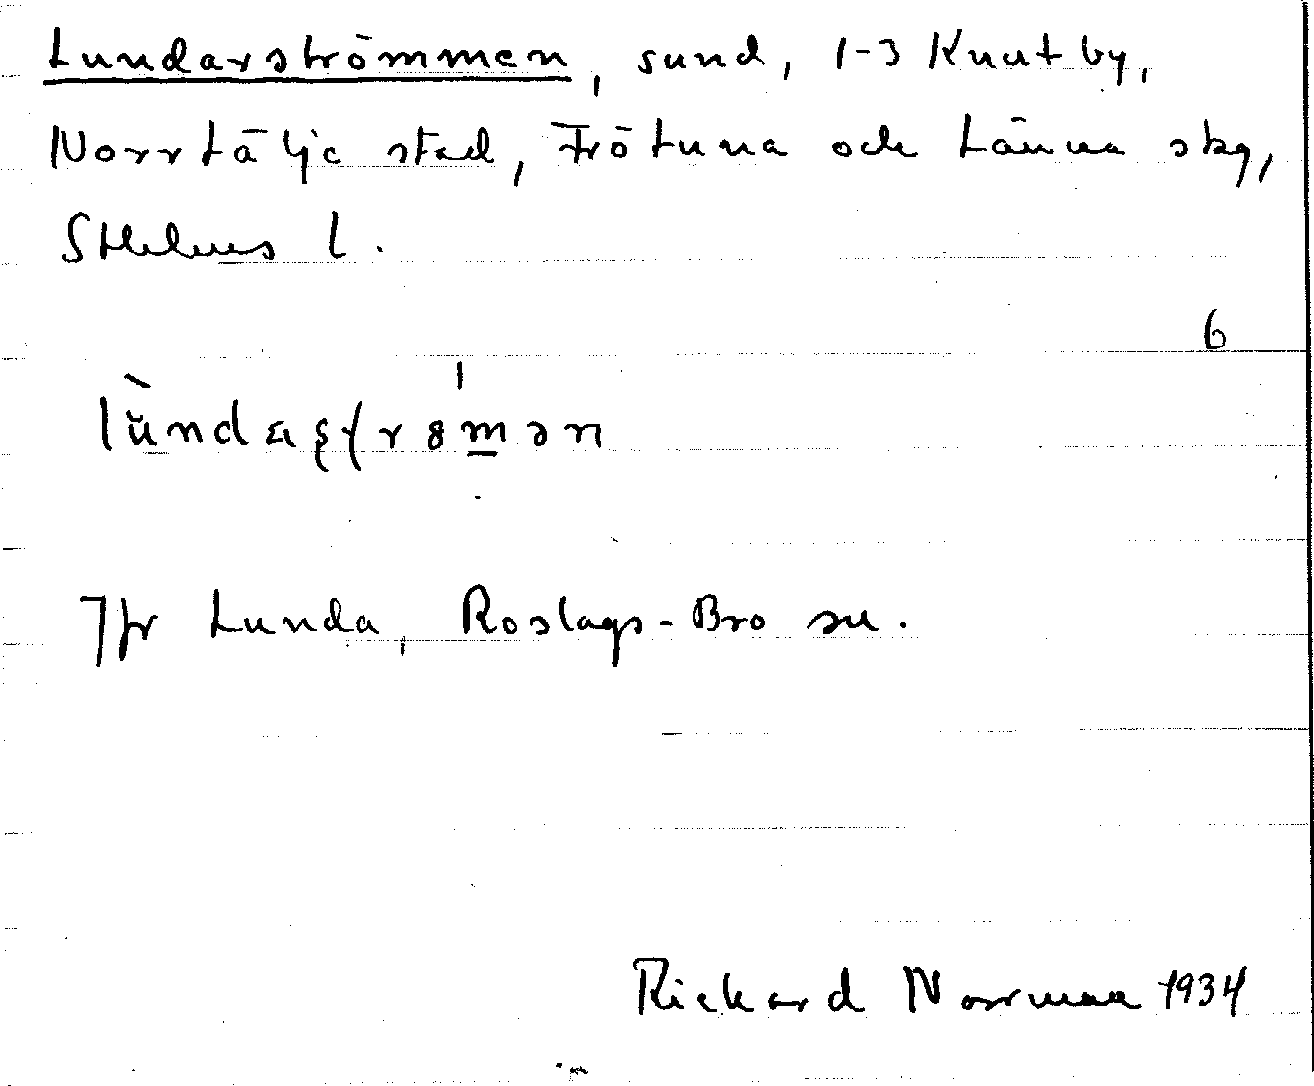 Lundarströmmen, sund, 1-3 Knutby,
Norrtälje stad, Frötuna och Länna skg,
Sthlms l.
6
Jfr Lunda, Roslags-Bro sn.
Rickard Norrman 1934